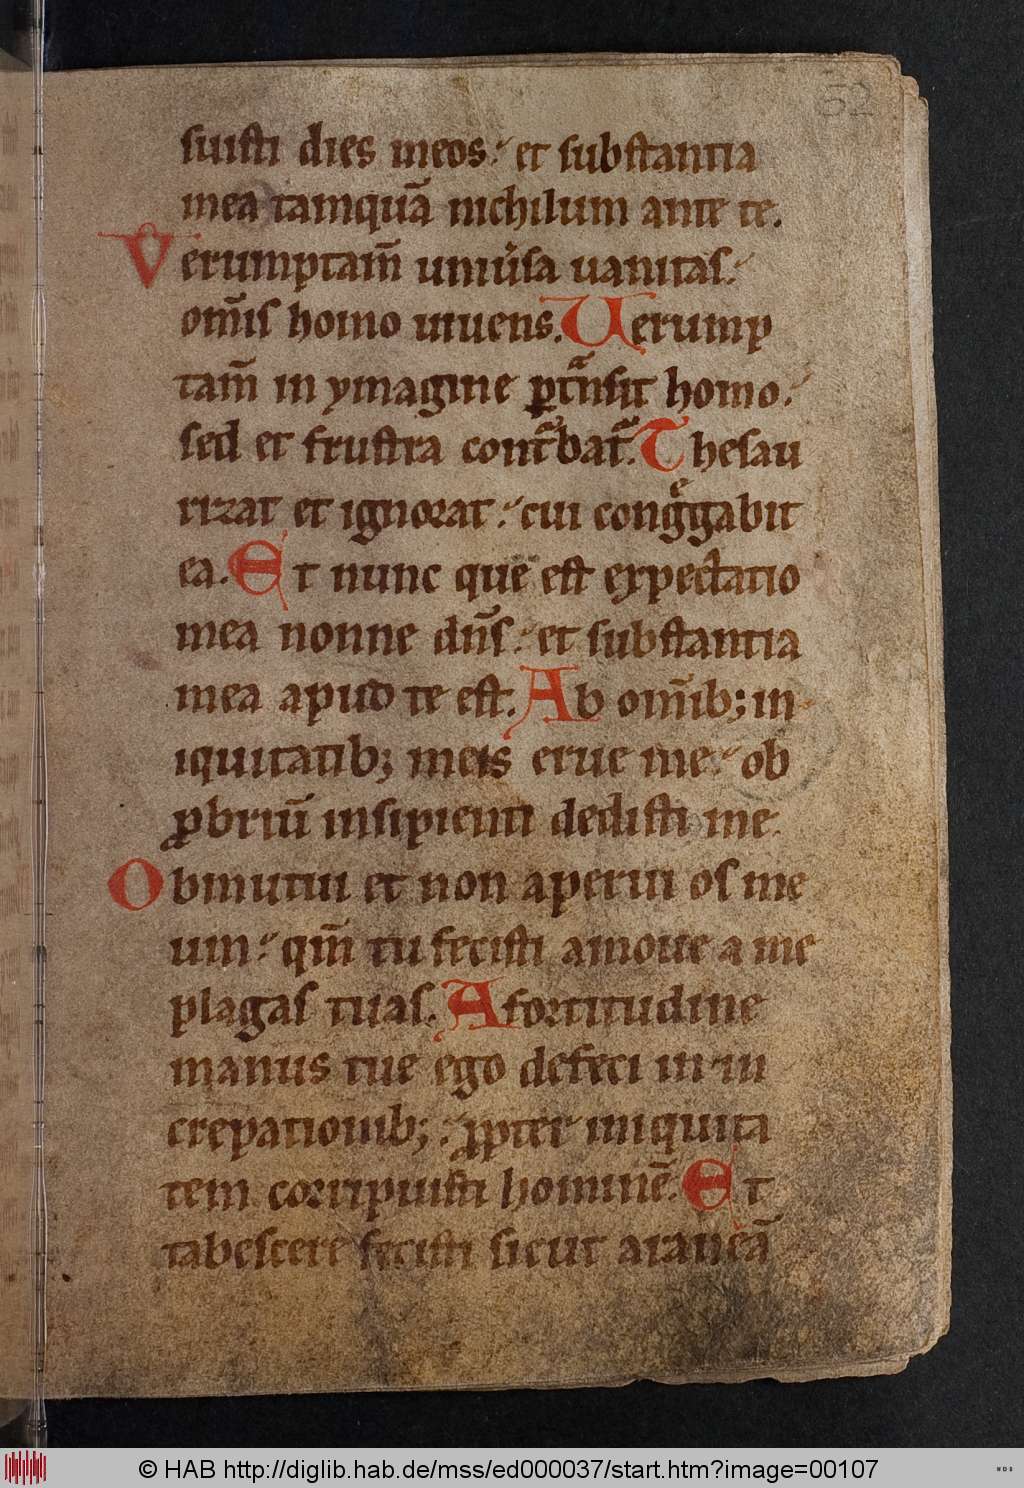 52
suisti dies meos: et substantia
mea tamquā nichilum ante te.
Verumptam̄ uniuʼsa uanitas:
om̄is homo uiuens. Uerump
tam̄ in ymagine ꝑtͣnsit homo:
sed et frustra contͣbatͬ. Thesau
rizat et ignorat: cui congͤgabit
ea. Et nunc que est expectatio
mea nonne dn̄s: et substantia
mea apud te est. Ab om̄ib; in
iquitatib; meis erue me: ob
ꝓbriū insipienti dedisti me.
Obmutui et non aperui os me
um: qm̄ tu fecisti amoue a me
plagas tuas. A fortitudine
manus tue ego defeci in in
crepationib;: ꝓpter iniquita
tem corripuisti hominē. Et
tabescere fecisti sicut araneā
© HAB http://diglib.hab.de/mss/ed000037/start.htm?image=00107